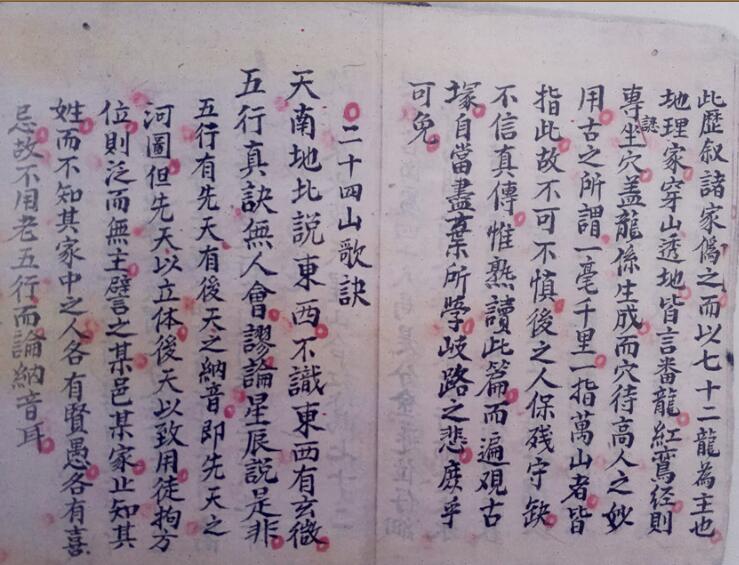 此歷叙諸家偽之而以七十二龍為主也
地理家穿山透地皆言番龍紅鸞经則
專坐穴盖龍係生成而穴待高人之妙
謎
用古之所謂一毫千里一指萬山者皆
指此故不可不慎後之人保残守缺
不信真傳惟熟讀此篇而遍观古
塚自當盡棄所学岐路之悲庶乎
可免
二十四山歌訣
天南地北說東西不識東西有玄微
五行真訣無人會謬論星辰說是非
五行有先天有後天之納音即先天之
河圖但先天以立体後天以致用徒拘方
位則泛而無主譬之某邑某家止知其
姓而不知其家中之人各有賢愚各有喜
忌故不用老五行而論納音耳